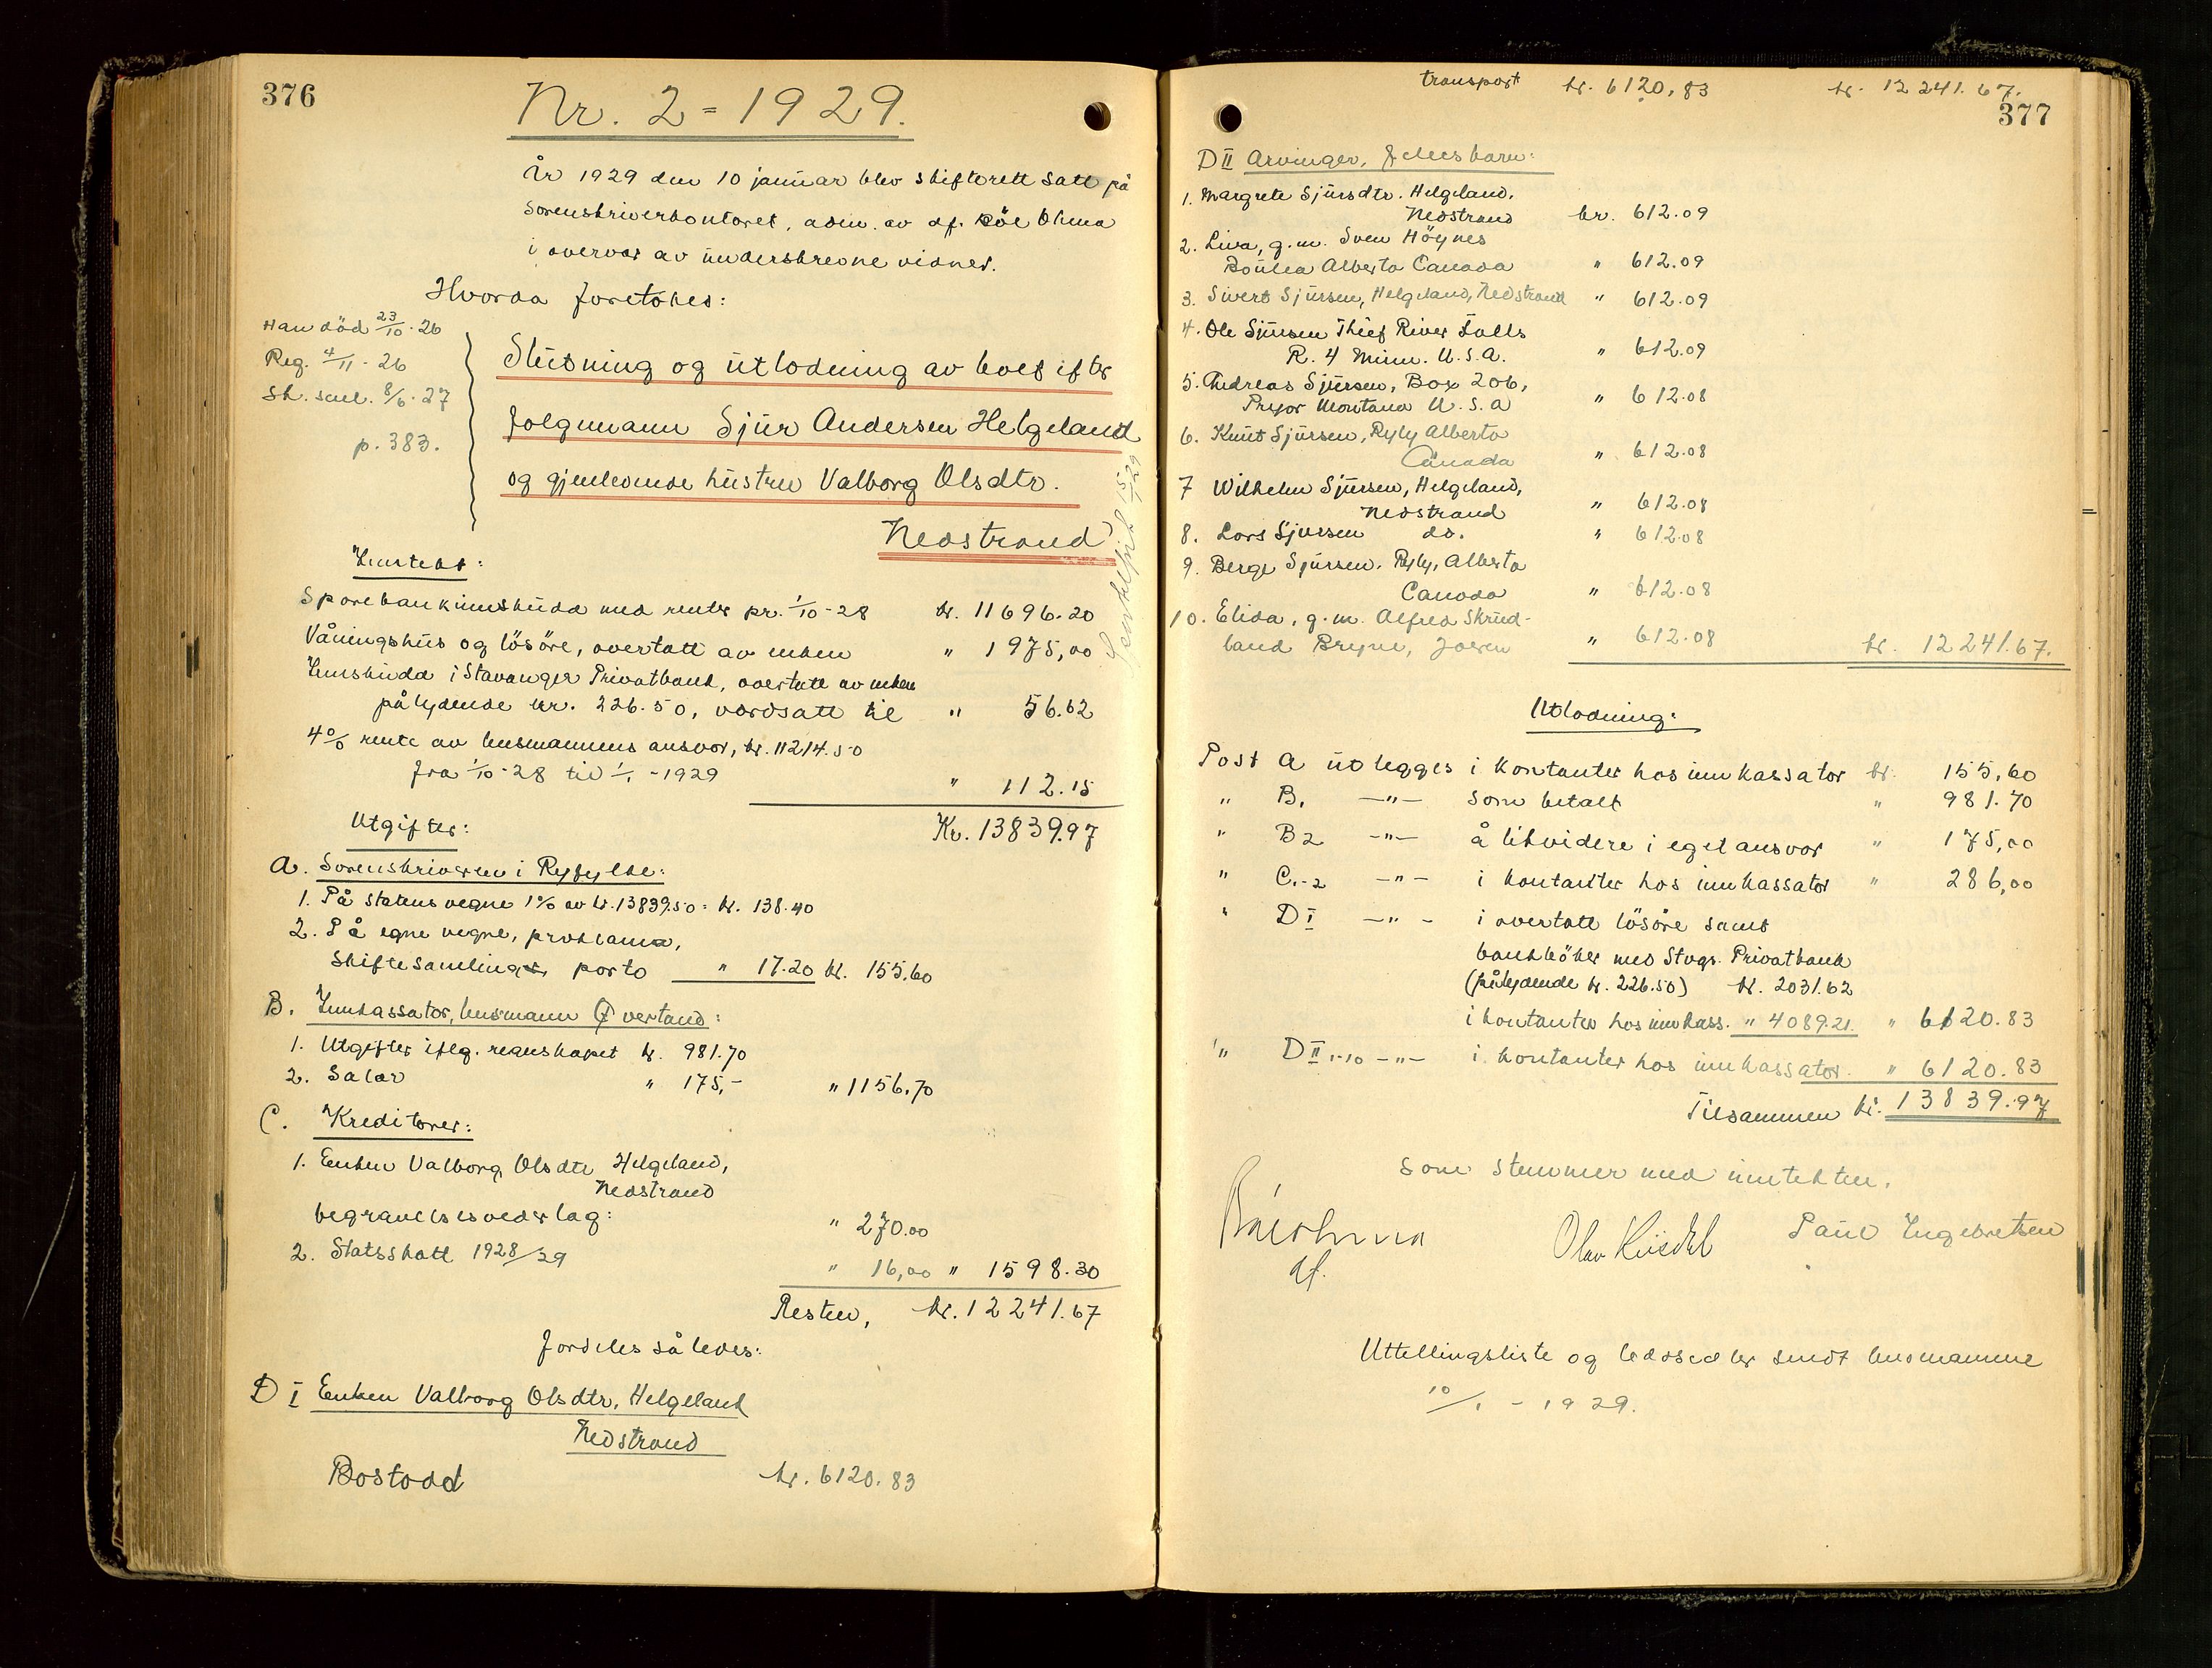 376
Nr. 2 = 1929.
År 1929 den 10 januar blev skifterett satt på
sorenskriverkontoret, adm. av df.
i overvær av underskrevne vidner.
Hvorda foretokes:
Han död 23/10-26
Reg. 4/11-26
Sk. saml. 8/6-27
p. 383.
Slutning og utlodning av boet efter
folgmann Sjur Andersen Helgeland
og gjenlevende hustru Valborg Olsdtr.
Nedstrand
15/1 29
Inntekt:
Sparebankinnskudd med renter pr. 1/10-28 kr. 11696.20
Våningshus og lösöre, overtatt av enken " 1975,00
Innskudd i Stavanger Privatbank, overtatt av enken
pålydende kr. 226.50, verdsatt til " 56.62
4% rente av lensmannens ansvar, kr. 11214.50
fra 1/10-28 til 1/1-1929 " 112.15
Kr. 13839.97
Utgifter:
A. Sorenskriveren i Ryfylke:
1. På statens vegne 1% av kr. 13839.50 = kr. 138.40
2. På egne vegne, proklama,
skiftesamling, porto " 17.20 kr. 155.60
B. Innkassator, lensmann Övertand:
1. Utgifter iflg. regnskapet kr. 981.70
2. Salær " 175,- " 1156.70
C. Kreditorer:
1. Enken Valborg Olsdtr Helgeland,
Nedstrand
begravelsesvederlag: " 270.00
2. Statsskatt 1928/29 " 16,00 " 1598.30
Resten, kr. 12241.67
fordeles således:
D I Enken Valborg Olsdtr, Helgeland
Nedstrand
Boslodd kr. 6120.83
transport kr. 6120,83 kr. 12241.67.
377
D II Arvinger, fellesbarn:
1. Margrete Sjursdtr. Helgeland,
Nedstrand kr. 612.09
2. Lina, g.m. Sven Höynes
Alberta Canada " 612.09
3. Sivert Sjursen, Helgeland, Nedstrand " 612.09
4. Ole Sjursen Thief River Falls
R. 4 Minn. U.S.A. " 612.09
5. Andreas Sjursen, Box 206,
Pryor Montana U.S.A " 612.08
6. Knut Sjursen, Ryly Alberta
Canada " 612.08
7 Wilhelm Sjursen, Helgeland,
Nedstrand " 612.08
8. Lars Sjursen do. " 612.08
9. Berge Sjursen. Ryly, Alberta
Canada " 612.08
10. Elida, g.m. Alfred Skrud-
land Bryne, Jæren " 612.08 kr. 12241.67.
Utlodning:
Post A utlegges i kontanter hos innkassator kr. 155,60
" B1 -"- som betalt " 981.70
" B2 -"- å likvidere i eget ansvar " 175,00
" C1-2 -"- i kontanter hos innkassator " 286,00
" D I -"- i overtatt lösöre samt
bankböker med Stvgr. Privatbank
(pålydende kr. 226.50) kr. 2031.62
i kontanter hos innkass. " 4089.21 " 6120.83
" D II 1-10 -"- i kontanter hos innkassator " 6120.83
Tilsammen kr. 13839.97
som stemmer med inntekten.
df.
Olav
Paul Ingebretsen
Uttellingsliste og lodsedler sendt lensmannen
10/1 - 1929.